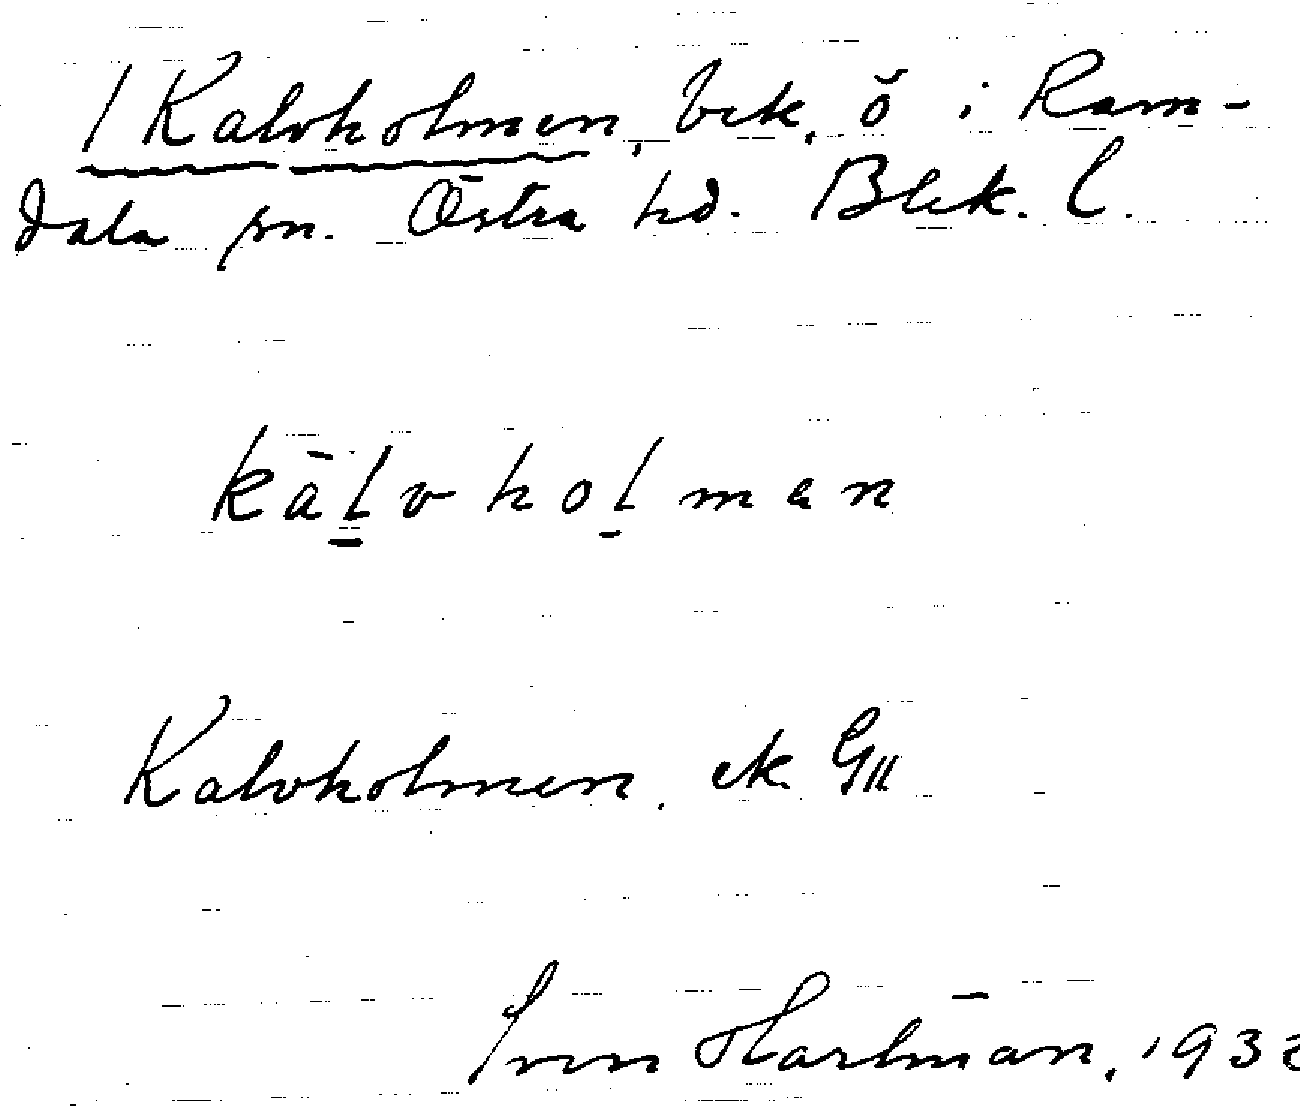 1 Kalvholmen, bek. ö i Ram-
dala sn. Östra hd. Blek. l.
kālvholmen
Kalvholmen. ek G II
Sven Hartman, 193